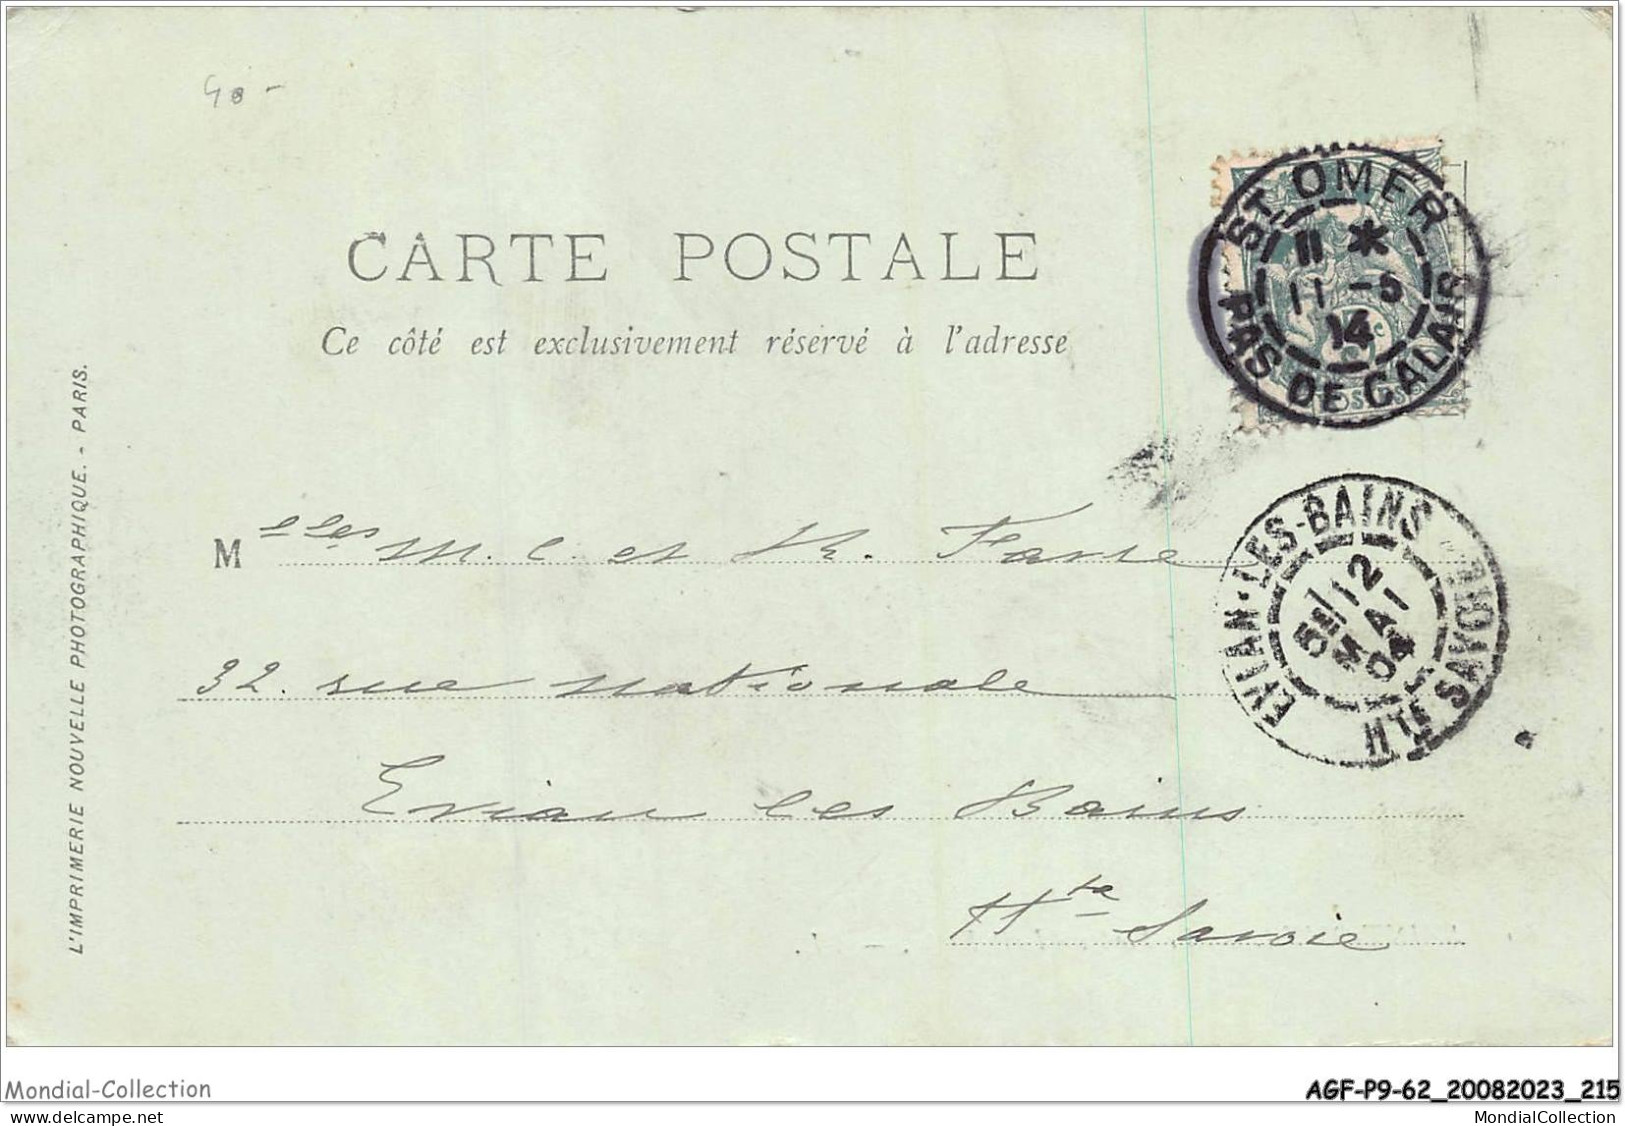 40 -
CARTE POSTALE
Ce côté est exclusivement réservé à l'adresse
ST OMER
11 *
11 -5
14
PAS DE CALAIS
5c
L'IMPRIMERIE NOUVELLE PHOTOGRAPHIQUE. - PARIS.
EVIAN-LES-BAINS
12
MAI
04
HTE SAVOIE
Melles M. C. et
32. rue nationale
Evian les Bains
Hte Savoie
Mondial-Collection
AGF-P9-62_20082023_215
MondialCollection